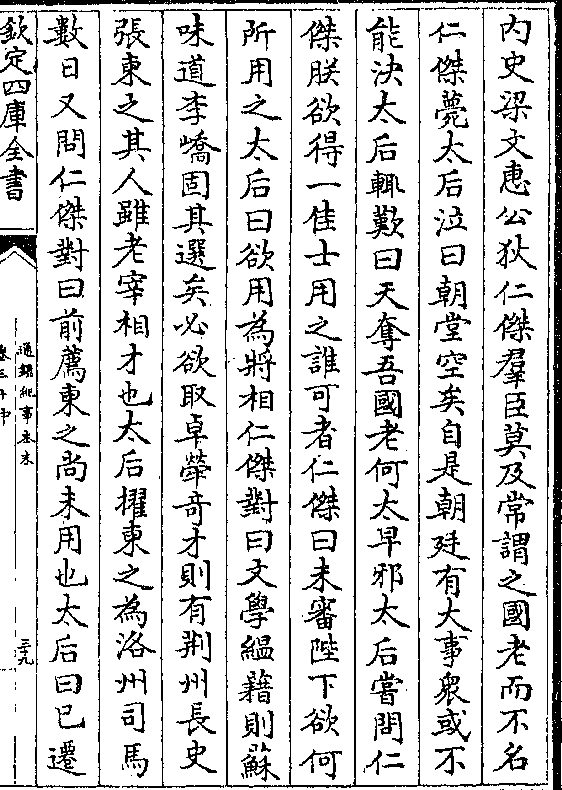 內史梁文惠公狄仁傑羣臣莫及常謂之國老而不名
仁傑薨太后泣曰朝堂空矣自是朝廷有大事衆或不
能決太后輒歎曰天奪吾國老何太早邪太后嘗問仁
傑朕欲得一佳士用之誰可者仁傑曰未審陛下欲何
所用之太后曰欲用為將相仁傑對曰文學緼藉則蘇
味道李嶠固其選矣必欲取卓犖奇才則有荆州長史
張柬之其人雖老宰相才也太后擢柬之為洛州司馬
數日又問仁傑對曰前薦柬之尚未用也太后曰已遷
欽定四庫全書
通鑑紀事本末
三十九